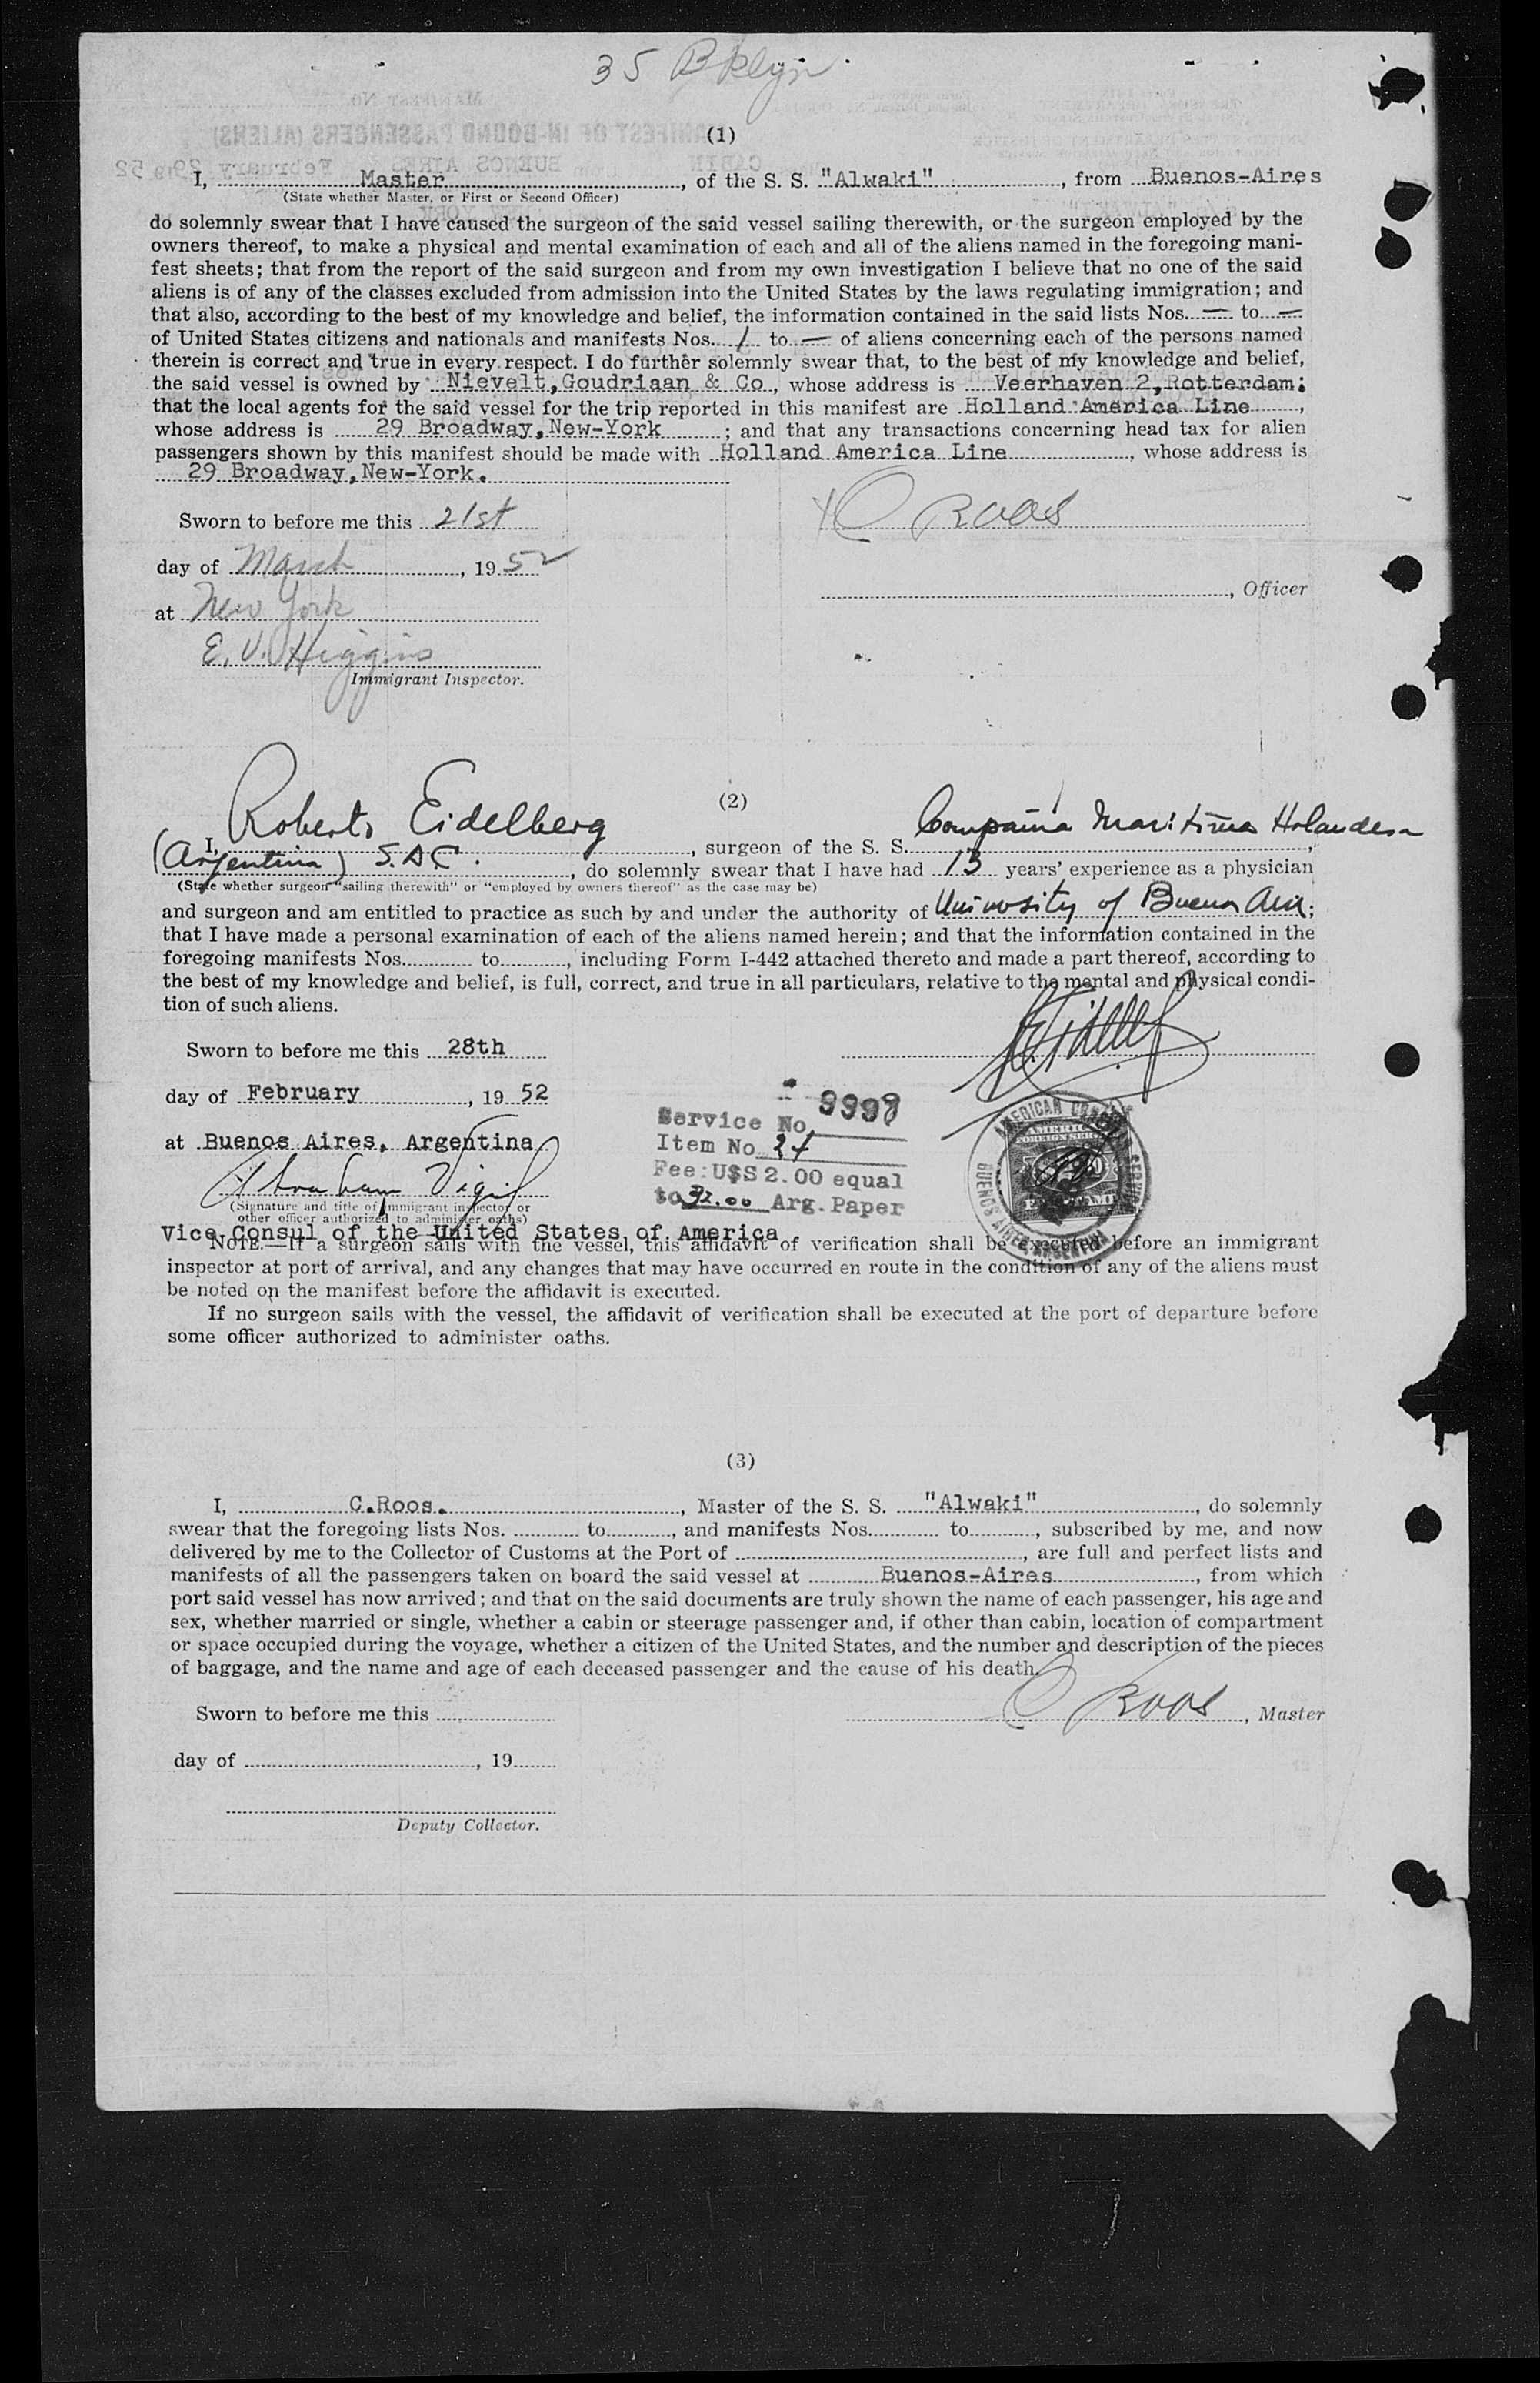 35 Bklyn.
(1)
I, Master, of the S. S. "Alwaki", from Buenos-Aires
(State whether Master, or First or Second Officer)
do solemnly swear that I have caused the surgeon of the said vessel sailing therewith, or the surgeon employed by the
owners thereof, to make a physical and mental examination of each and all of the aliens named in the foregoing mani-
fest sheets; that from the report of the said surgeon and from my own investigation I believe that no one of the said
aliens is of any of the classes excluded from admission into the United States by the laws regulating immigration; and
that also, according to the best of my knowledge and belief, the information contained in the said lists Nos. — to —
of United States citizens and nationals and manifests Nos. 1 to — of aliens concerning each of the persons named
therein is correct and true in every respect. I do further solemnly swear that, to the best of my knowledge and belief,
the said vessel is owned by Nievelt,Goudriaan & Co, whose address is Veerhaven 2,Rotterdam;
that the local agents for the said vessel for the trip reported in this manifest are Holland America Line,
whose address is 29 Broadway,New-York; and that any transactions concerning head tax for alien
passengers shown by this manifest should be made with Holland America Line, whose address is
29 Broadway,New-York.
Sworn to before me this 21st
C Roos
day of March, 1952
, Officer
at New York
E. V. Higgins
Immigrant Inspector.
(2)
I, Roberto Eidelberg, surgeon of the S. S. Compañia Maritima Holandesa,
(Argentina) S.A.C., do solemnly swear that I have had 13 years' experience as a physician
(State whether surgeon "sailing therewith" or "employed by owners thereof" as the case may be)
and surgeon and am entitled to practice as such by and under the authority of University of Buenos Aires;
that I have made a personal examination of each of the aliens named herein; and that the information contained in the
foregoing manifests Nos. to, including Form I-442 attached thereto and made a part thereof, according to
the best of my knowledge and belief, is full, correct, and true in all particulars, relative to the mental and physical condi-
tion of such aliens.
Sworn to before me this 28th
day of February, 1952
Service No. 9998
Item No. 24
Fee: U$S 2.00 equal
to 32.00 Arg. Paper
AMERICAN CONSULAR SERVICE
BUENOS AIRES, ARGENTINA
AMERICAN
FOREIGN SERVICE
FEE STAMP
at Buenos Aires, Argentina
Abraham Vigil
(Signature and title of immigrant inspector or
other officer authorized to administer oaths)
Vice Consul of the United States of America
NOTE.—If a surgeon sails with the vessel, this affidavit of verification shall be executed before an immigrant
inspector at port of arrival, and any changes that may have occurred en route in the condition of any of the aliens must
be noted on the manifest before the affidavit is executed.
If no surgeon sails with the vessel, the affidavit of verification shall be executed at the port of departure before
some officer authorized to administer oaths.
(3)
I, C.Roos., Master of the S. S. "Alwaki", do solemnly
swear that the foregoing lists Nos. to, and manifests Nos. to, subscribed by me, and now
delivered by me to the Collector of Customs at the Port of, are full and perfect lists and
manifests of all the passengers taken on board the said vessel at Buenos-Aires, from which
port said vessel has now arrived; and that on the said documents are truly shown the name of each passenger, his age and
sex, whether married or single, whether a cabin or steerage passenger and, if other than cabin, location of compartment
or space occupied during the voyage, whether a citizen of the United States, and the number and description of the pieces
of baggage, and the name and age of each deceased passenger and the cause of his death.
Sworn to before me this
C Roos, Master
day of, 19
Deputy Collector.